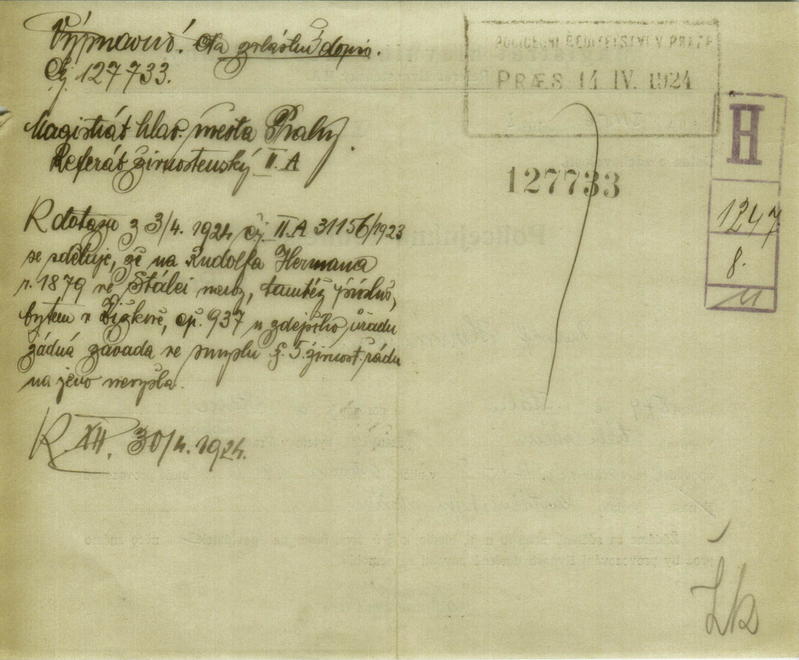 Vypraviti! Na zvláštní dopis.
Čj. 127733.
POLICEJNÍ ŘEDITELSTVÍ V PRAZE
PRÆS 14 IV. 1924
H
1247
8.
127733
Magistrát hlav. města Prahy.
Referát živnostenský II. A
K dotazu z 3/4. 1924 čj. II. A 31156/1923
se sděluje, že na Rudolfa Hermana
r. 1879 ve naroz, tamtéž přísluš,
bytem v Žižkově, čp. 937 u zdejšího úřadu
žádná závada ve smyslu §. 5. živnost. řádu
na jevo nevyšla.
XII. 30/4. 1924.